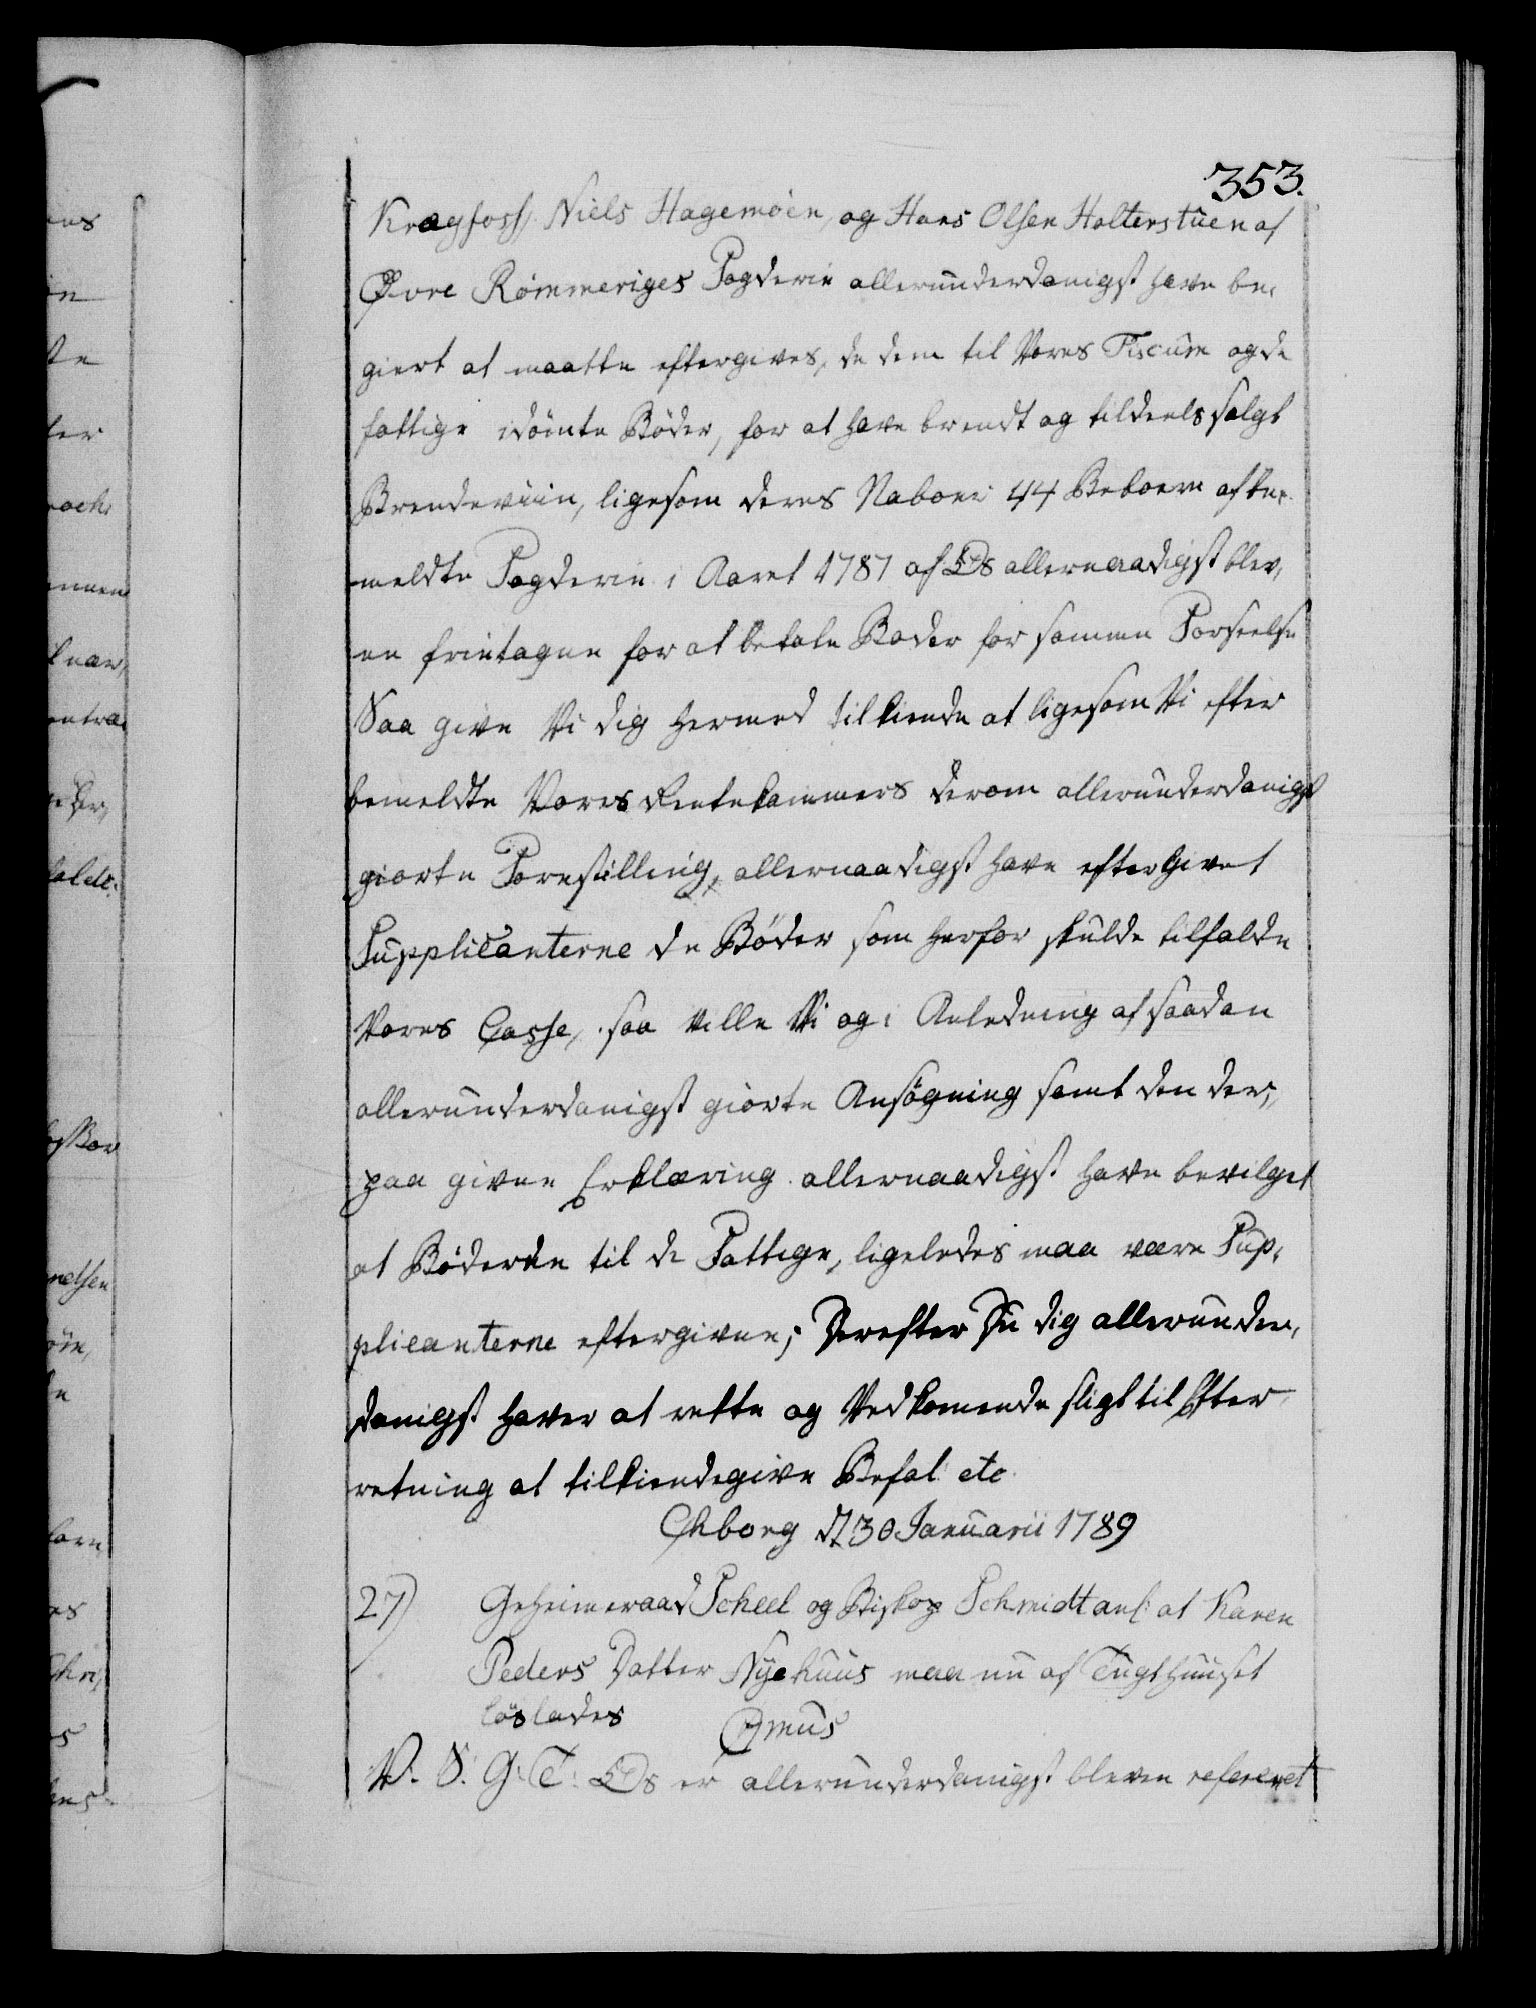 353.
Kragfoss, Niels Hagemöen, og Hans Olsen Holterstuen af
Øvre Rommeriges Fogderie allerunderdanigst have be,
giert at maatte eftergives, de dem til Vores Fiscum og de
fattige idömte Böder, for at have brendt og tildeels solgt
Brendeviin, ligesom deres Naboer 44 Beboere af be,
meldte Fogderie i Aaret 1787 af Os allernaadigst blev,
ne frietagne for at betale Bøder for samme Forseelse
Saa give Vi dig hermed tilkiende at ligesom Vi efter
bemeldte Vores Rentekammers derom allerunderdanigst
giorte Forestilling, allernaadigst have eftergivet
Supplicanterne de Böder som herfor skulde tilfalde
Vores Casse, saa ville Vi og i Anledning af saadan
allerunderdanigst giorte Ansögning samt den der,
paa givne Erklæring allernaadigst have bevilget
at Böderne til de Fattige, ligeledes maa være Sup,
plicanterne eftergivne; Derefter Du dig allerunder,
danigst haver at rette og Vedkomende sligt til Efter
retning at tilkiendegive Befal: etc
Chborg d 30 Januarii 1789
27) Geheimeraad Scheel og Biskop Schmidt anl: at Karen
Peders Datter Nyehuus maa nu af Tugthuuset
löslades
V. S. G: T: Os er allerunderdanigst bleven refereret